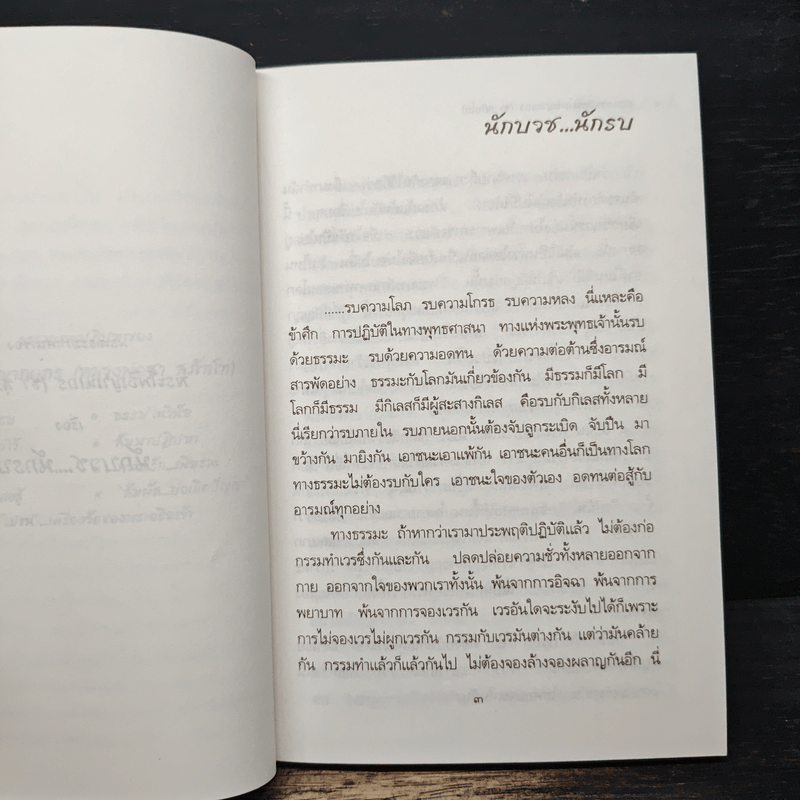 นักบวช...นักรบ
......รบความโลภ รบความโกรธ รบความหลง นี่แหละคือ
ข้าศึก การปฏิบัติในทางพุทธศาสนา ทางแห่งพระพุทธเจ้านั้นรบ
ด้วยธรรมะ รบด้วยความอดทน ด้วยความต่อต้านซึ่งอารมณ์
สารพัดอย่าง ธรรมะกับโลกมันเกี่ยวข้องกัน มีธรรมก็มีโลก มี
โลกก็มีธรรม มีกิเลสก็มีผู้สะสางกิเลส คือรบกับกิเลสทั้งหลาย
นี่เรียกว่ารบภายใน รบภายนอกนั้นต้องจับลูกระเบิด จับปืน มา
ขว้างกัน มายิงกัน เอาชนะเอาแพ้กัน เอาชนะคนอื่นก็เป็นทางโลก
ทางธรรมะไม่ต้องรบกับใคร เอาชนะใจของตัวเอง อดทนต่อสู้กับ
อารมณ์ทุกอย่าง
ทางธรรมะ ถ้าหากว่าเรามาประพฤติปฏิบัติแล้ว ไม่ต้องก่อ
กรรมทำเวรซึ่งกันและกัน ปลดปล่อยความชั่วทั้งหลายออกจาก
กาย ออกจากใจของพวกเราทั้งนั้น พ้นจากการอิจฉา พ้นจากการ
พยาบาท พ้นจากการจองเวรกัน เวรอันใดจะระงับไปได้ก็เพราะ
การไม่จองเวรไม่ผูกเวรกัน กรรมกับเวรมันต่างกัน แต่ว่ามันคล้าย
กัน กรรมทำแล้วก็แล้วกันไป ไม่ต้องจองล้างจองผลาญกันอีก นี่
๓